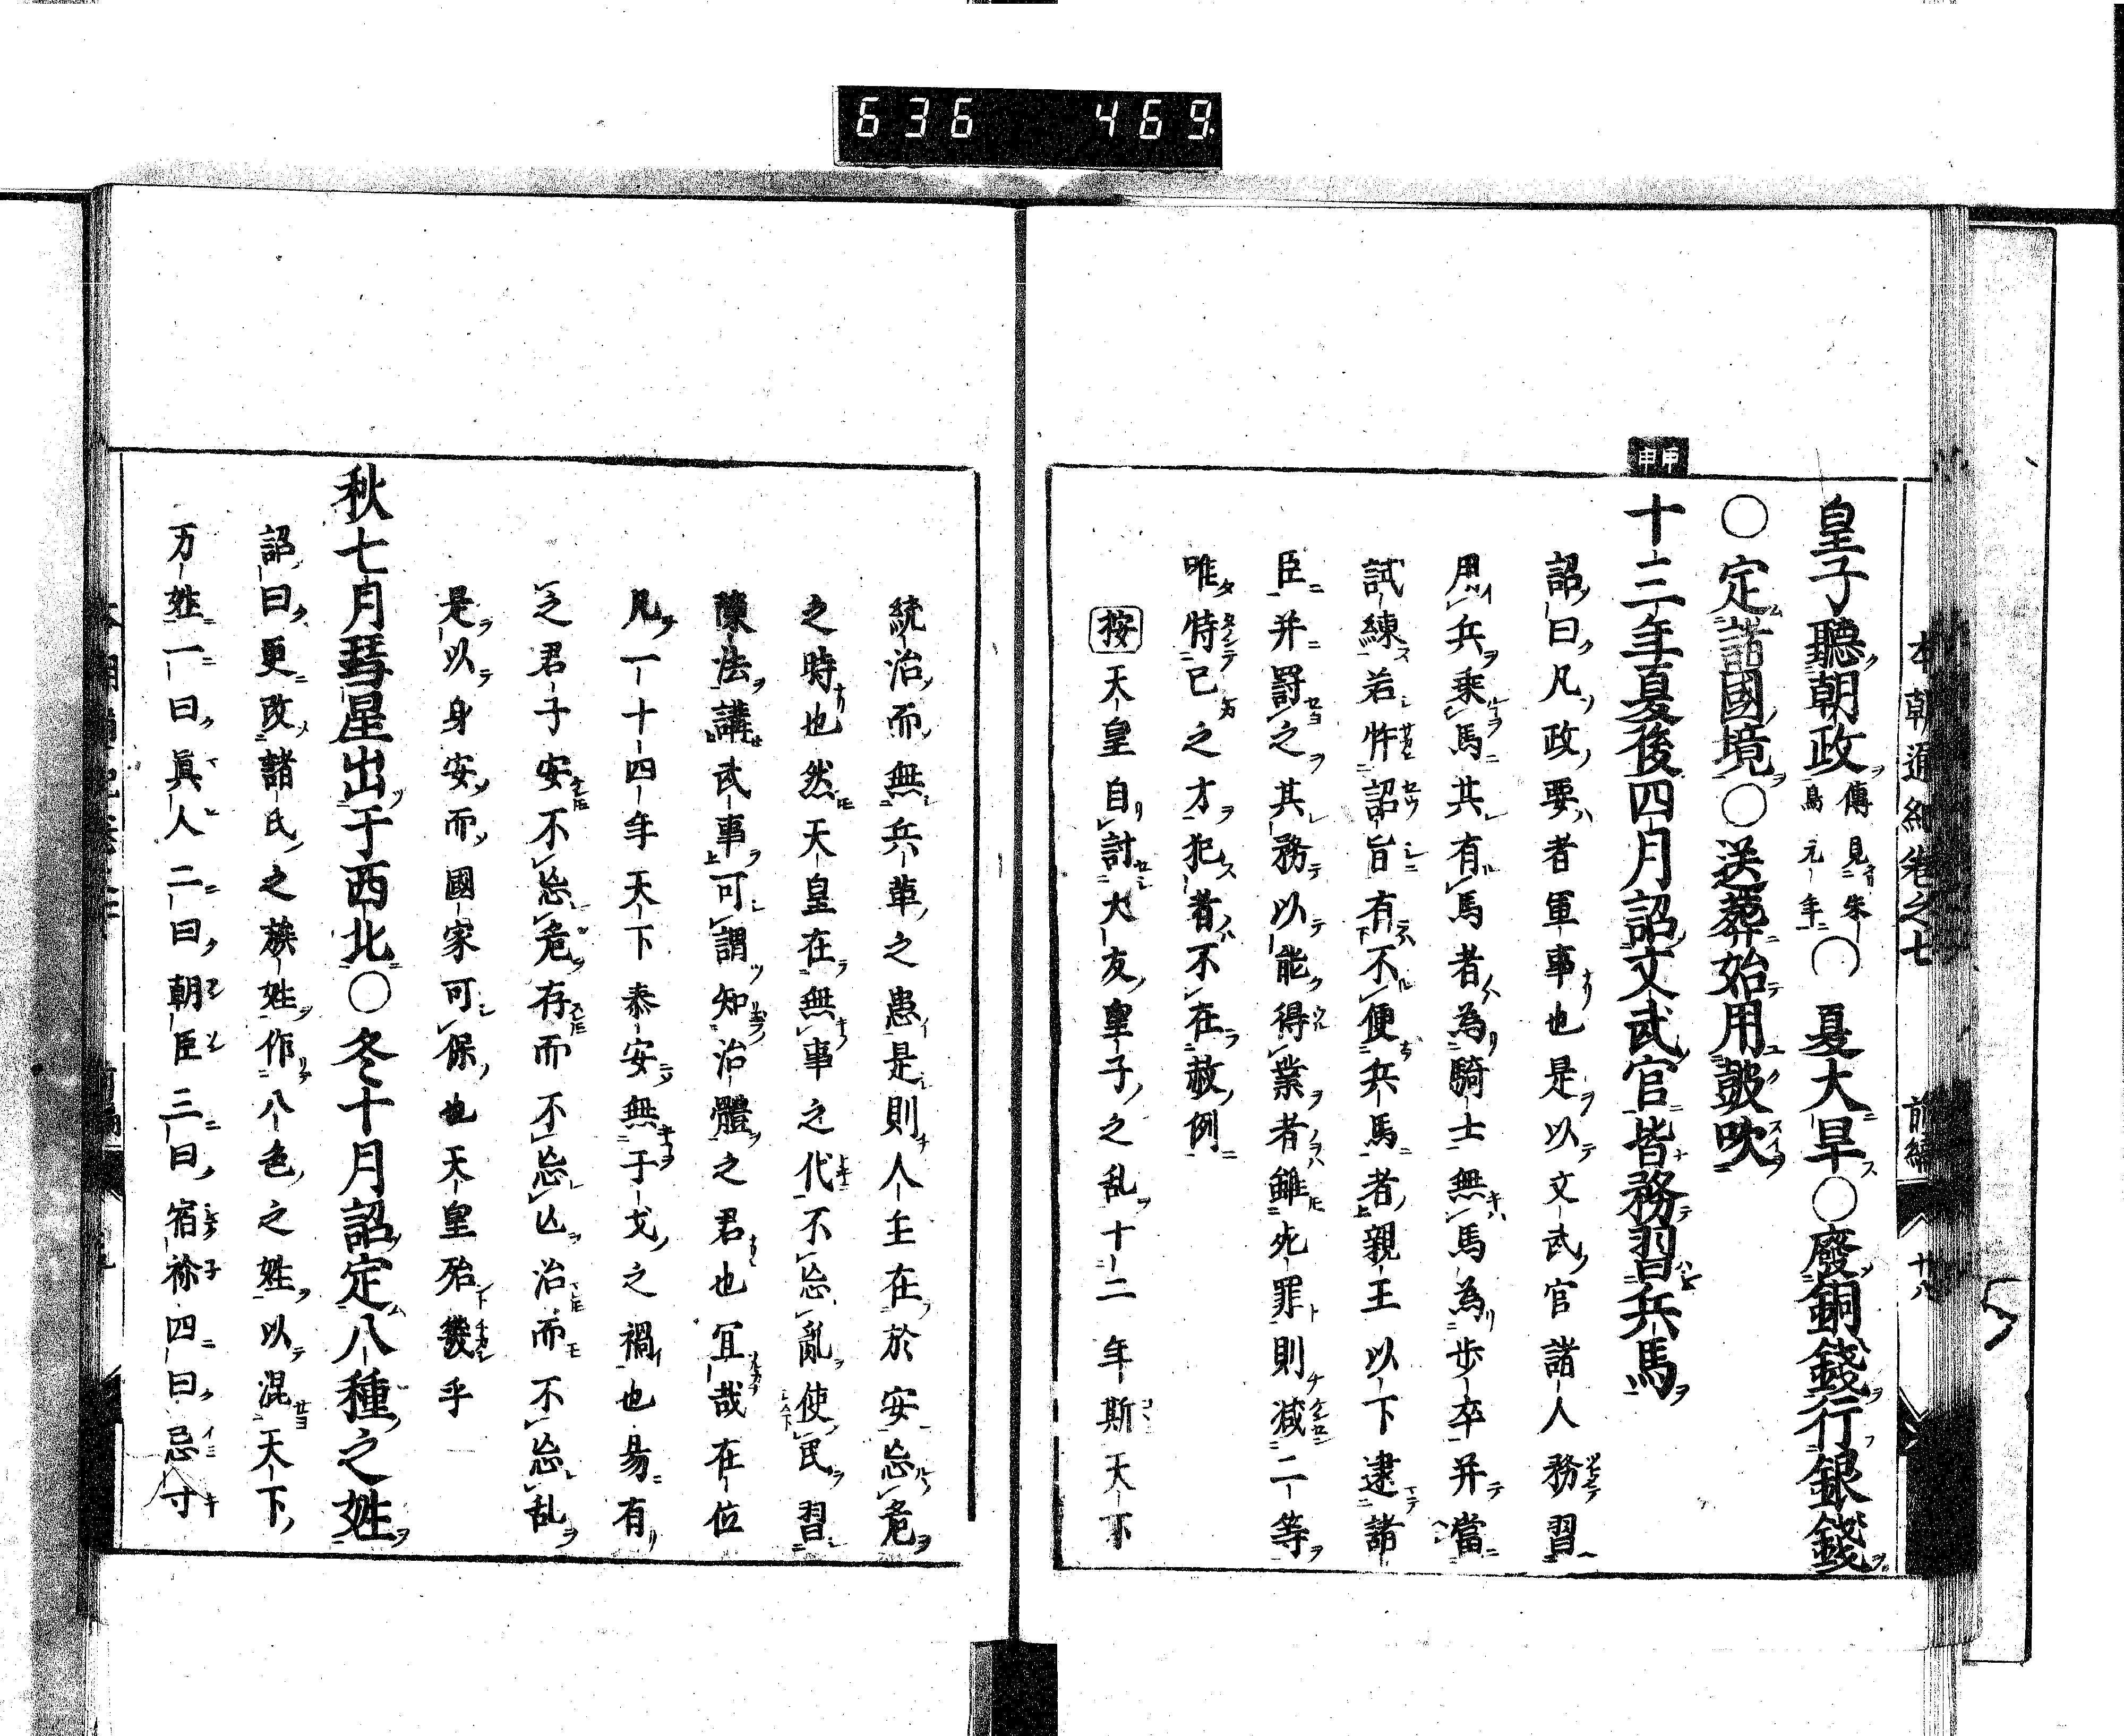 636 469
本朝通紀卷之七 前編 十八
皇子聽朝政傳見朱鳥元年〇夏大旱〇廢銅錢行銀錢
〇定諸國境〇送葬始用皷吹
甲申
十三年夏後四月詔文武官皆務習兵馬
詔曰凡政要者軍事也是以文武官諸人務習
用兵乘馬其有馬者為騎士無馬為歩卒并當
試練若忤詔旨有不便兵馬者親王以下逮諸
臣并罸之其務以能得業者雖死罪則減二等
唯恃已之才犯者不在赦例
按天皇自討大友皇子之乱十二年斯天下
統治而無兵革之患是則人主在於安忘危
之時也然天皇在無事之代不忘亂使民習
陳法講武事可謂知治體之君也宜哉在位
凡一十四年天下泰安無于戈之禍也昜有
之君子安不忘危存而不忘亾治而不忘乱
是以身安而國家可保也天皇殆幾乎
秋七月彗星出于西北〇冬十月詔定八種之姓
詔曰更改諸氏之族姓作八色之姓以混天下
万姓一曰眞人二曰朝臣三曰宿祢四曰忌寸